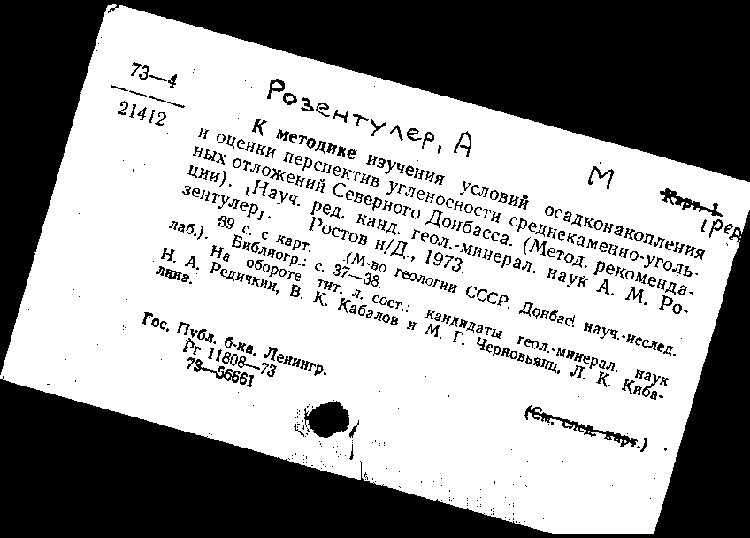 73—4
21412
Розентулер, А М
Карт. 1
, ред
К методике изучения условий осадконакопления
и оценки перспектив угленосности среднекаменно-уголь-
ных отложений Северного Донбасса. (Метод. рекоменда-
ции). [Науч. ред. канд. геол.-минерал. наук А. М. Ро-
зентулер]. Ростов н/Д., 1973.
39 с. с карт. (М-во геологии СССР. Донбас! науч.-исслед.
лаб.). Библиогр.: с. 37—38.
На обороте тит. л. сост.: кандидаты геол.-минерал. наук
Н. А. Редичкин, В. К. Кабалов и М. Г. Черновьянц, Л. К. Киба-
лина.
Гос. Публ. б-ка. Ленингр.
Рт 11808—73
73—56661
(См. след. карт.)